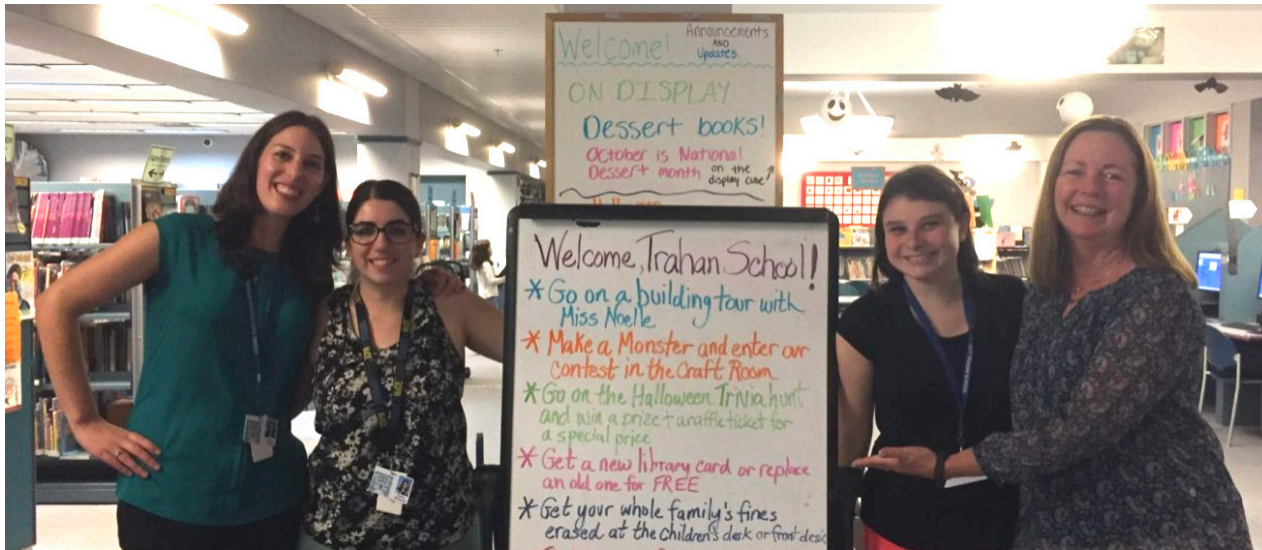 Welcome!
Announcements
AND
Updates
ON DISPLAY:
Dessert books!
October is National
Dessert month
on the
display cube
Welcome, Trahan School!
* Go on a building tour with
Miss Noelle
* Make a Monster and enter our
contest in the Craft Room
* Go on the Halloween Trivia hunt
and win a prize + a raffle ticket for
a special prize
* Get a new library card or replace
an old one for FREE
* Get your whole family's fines
erased at the children's desk or front desk